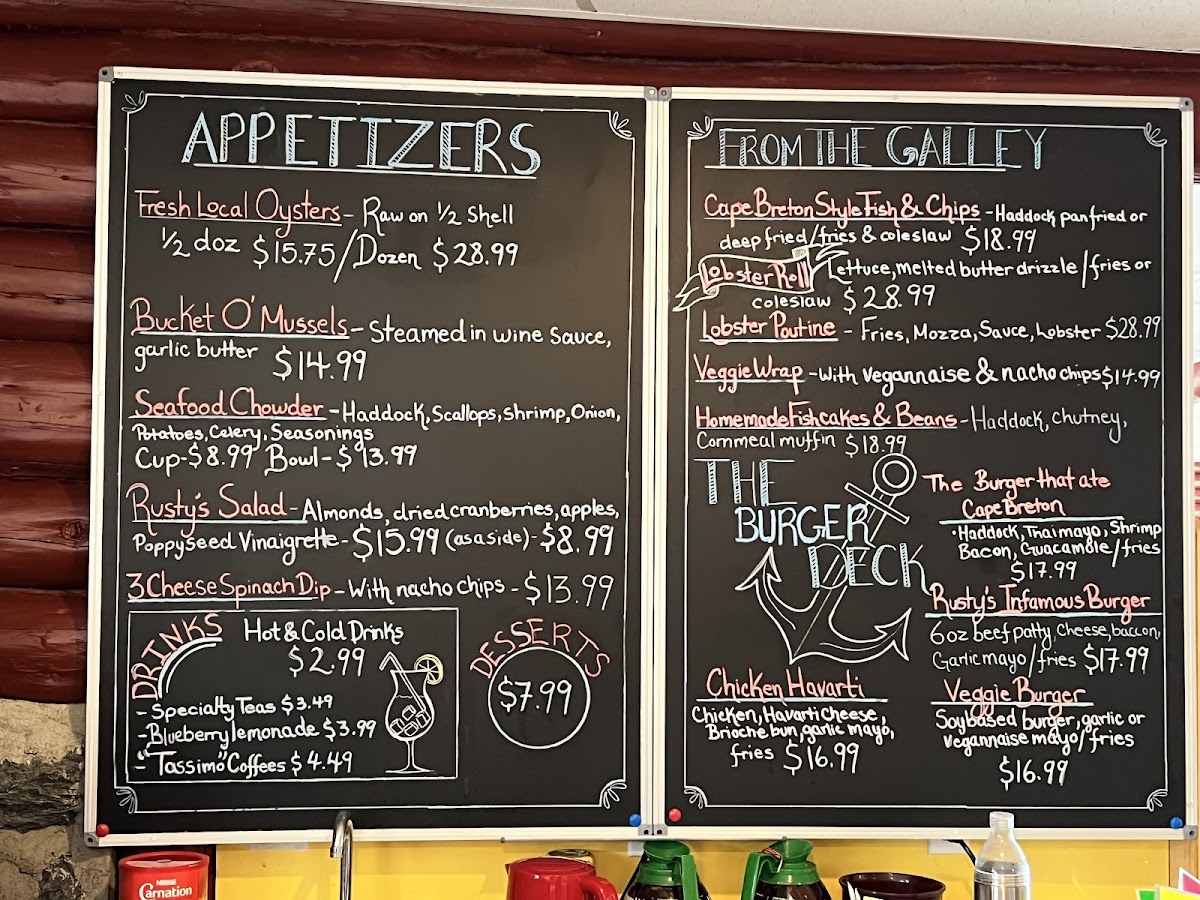 APPETIZERS
Fresh Local Oysters - Raw on 1/2 Shell
1/2 doz $15.75/Dozen $28.99
Bucket O' Mussels - Steamed in wine Sauce,
garlic butter $14.99
Seafood Chowder - Haddock, Scallops, shrimp, Onion,
Potatoes, Celery, Seasonings
Cup - $8.99 Bowl - $13.99
Rusty's Salad - Almonds, dried cranberries, apples,
Poppyseed Vinaigrette - $15.99 (as a side) - $8.99
3 Cheese Spinach Dip - With nacho chips - $13.99
DRINKS
Hot & Cold Drinks
$2.99
- Specialty Teas $3.49
- Blueberry lemonade $3.99
- "Tassimo" Coffees $4.49
DESSERTS
$7.99
FROM THE GALLEY
Cape Breton Style Fish & Chips - Haddock pan fried or
deep fried/fries & coleslaw $18.99
Lobster Roll Lettuce, melted butter drizzle/fries or
coleslaw $28.99
Lobster Poutine - Fries, Mozza, Sauce, Lobster $28.99
Veggie Wrap - With vegannaise & nacho chips $14.99
Homemade Fishcakes & Beans - Haddock, chutney,
Cornmeal muffin $18.99
THE
BURGER
DECK
The Burger that ate
Cape Breton
• Haddock, Thai mayo, Shrimp
Bacon, Guacamole/fries
$17.99
Rusty's Infamous Burger
6 oz beef patty, Cheese, bacon,
Garlic mayo/fries $17.99
Chicken Havarti
Chicken, Havarti cheese,
Brioche bun, garlic mayo,
fries $16.99
Veggie Burger
Soy based burger, garlic or
vegannaise mayo/fries
$16.99
Nestlé
Carnation